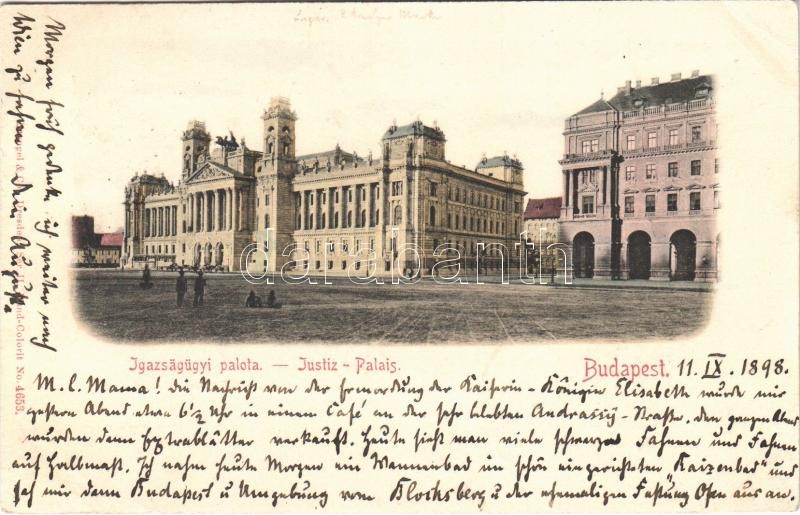 Igazságügyi palota. — Justiz-Palais.
Budapest. 11. IX. 1898.
M. l. Mama! Die Nachricht von der Ermordung der Kaiserin-Königin Elisabeth wurde mir
gestern Abend etwa 6 1/2 Uhr in einem Café an der sehr belebten Andrassy-Straße. Den ganzen Abend
wurden dann Extrablätter verkauft. Heute sieht man viele schwarze Fahnen und Fahnen
auf Halbmast. Ich nahm heute Morgen ein Wannenbad im schön eingerichteten "Kaizenbad" und
sah mir dann Budapest u Umgebung vom Blocksberg u der ehemaligen Festung Ofen aus an.
Morgen früh gedenke ich weiter nach
Wien zu fahren. Dein August.
No. 4653.
darabanth